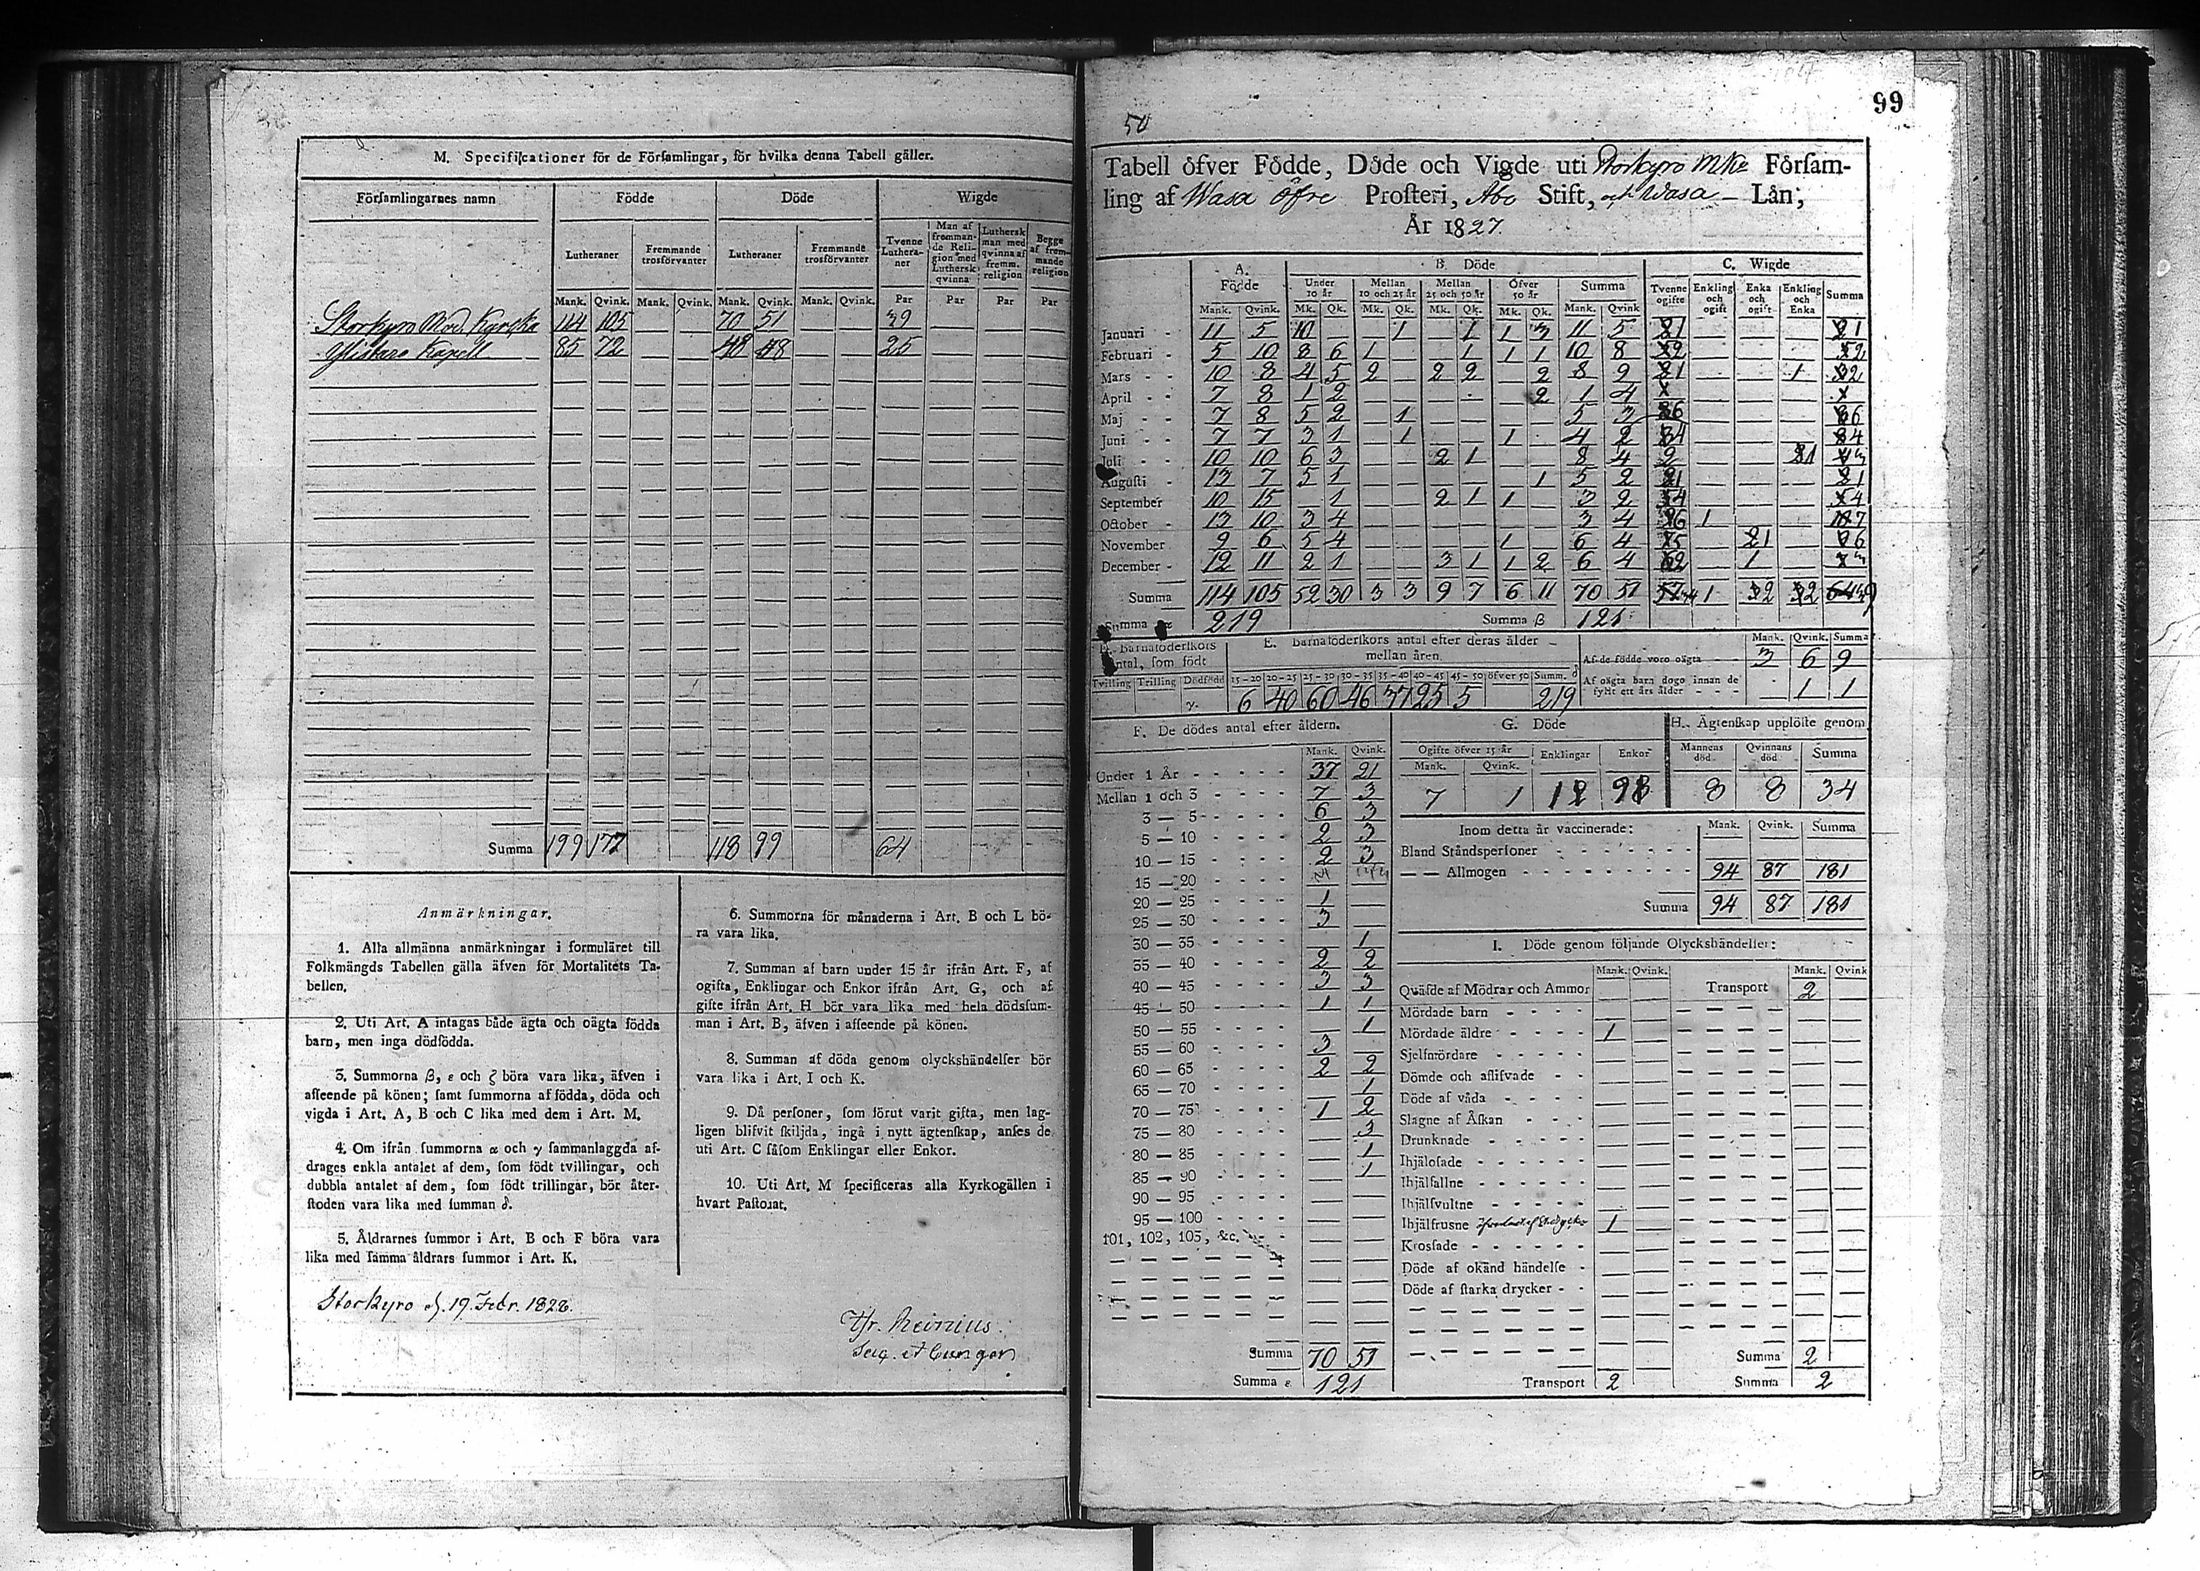 M. Specificationer för de Församlingar, för hvilka denna Tabell gäller.
Församlingarnes namn | Födde | Döde | Wigde
Lutheraner | Fremmande trosförvanter | Lutheraner | Fremmande trosförvanter | Tvenne Lutheraner | Man af fremmande Religion med Luthersk qvinna | Luthersk man med qvinna af fremm. religion | Begge af fremmande religion
Mank. Qvink. Mank. Qvink. Mank. Qvink. Mank. Qvink. Par Par Par Par
Storkyro Mod. Kyrcka 114 105 — — 70 51 — — 39
Ylistaro Kapell 85 72 — — 48 48 — — 25
Summa 199 177 118 99 64
Anmärkningar.
1. Alla allmänna anmärkningar i formuläret till
Folkmängds Tabellen gälla äfven för Mortalitets Ta-
bellen.
2. Uti Art. A intagas både ägta och oägta födda
barn, men inga dödfödda.
3. Summorna β, ε och ζ böra vara lika, äfven i
afseende på könen; samt summorna af födda, döda och
vigda i Art. A, B och C lika med dem i Art. M.
4. Om ifrån summorna α och γ sammanlaggda af-
drages enkla antalet af dem, som födt tvillingar, och
dubbla antalet af dem, som födt trillingar, bör åter-
stoden vara lika med summan δ.
5. Åldrarnes summor i Art. B och F böra vara
lika med samma åldrars summor i Art. K.
6. Summorna för månaderna i Art. B och L bö-
ra vara lika.
7. Summan af barn under 15 år ifrån Art. F, af
ogifta, Enklingar och Enkor ifrån Art. G, och af
gifte ifrån Art. H bör vara lika med hela dödssum-
man i Art. B, äfven i afseende på könen.
8. Summan af döda genom olyckshändelser bör
vara lika i Art. I och K.
9. Då personer, som förut varit gifta, men lag-
ligen blifvit skiljda, ingå i nytt ägtenskap, anses de
uti Art. C såsom Enklingar eller Enkor.
10. Uti Art. M specificeras alla Kyrkogällen i
hvart Pastorat.
Storkyro d. 19 Febr. 1828.
99
50
Tabell öfver Födde, Döde och Vigde uti Storkyro Mke Försam-
ling af Wasa Öfre Prosteri, Åbo Stift, och Wasa Län;
År 1827.
A. Födde | B. Döde | C. Wigde
Under 10 år | Mellan 10 och 25 år | Mellan 25 och 50 år | Öfver 50 år | Summa | Tvenne ogifte | Enkling och ogift | Enka och ogift | Enkling och Enka | Summa
Mank. Qvink. Mk. Qk. Mk. Qk. Mk. Qk. Mk. Qk. Mank. Qvink.
Januari 11 5 10 — — 1 — 1 1 3 11 5
Februari 5 10 8 6 1 — — 1 1 1 10 8
Mars 10 8 4 5 2 — 2 2 — 2 8 9
April 7 8 1 2 — — — — — 2 1 4
Maj 7 8 5 2 — 1 — — — — 5 3
Juni 7 7 3 1 — 1 — — 1 — 4 2
Juli 10 10 6 3 — — 2 1 — — 8 4
Augusti 13 7 5 1 — — — — — 1 5 2
September 10 15 — 1 — — 2 1 1 — 3 2
October 13 10 3 4 — — — — — — 3 4
November 9 6 5 4 — — — — 1 — 6 4
December 12 11 2 1 — — 3 1 1 2 6 4
Summa 114 105 52 30 3 3 9 7 6 11 70 51
Summa α 219 Summa β 121
D. Barnaföderskors antal, som födt
Tvilling Trilling Dödfödd
γ.
E. Barnaföderskors antal efter deras ålder mellan åren.
15—20 20—25 25—30 30—35 35—40 40—45 45—50 öfver 50 Summ. δ
6 40 60 46 37 25 5 219
Mank. Qvink. Summa
Af de födde voro oägta 3 6 9
Af oägta barn dogo innan de fyllt ett års ålder 1 1
F. De dödes antal efter åldern.
Mank. Qvink.
Under 1 År 37 21
Mellan 1 och 3 7 3
3 — 5 6 3
5 — 10 2 3
10 — 15 2 3
15 — 20
20 — 25 1 —
25 — 30 3 —
30 — 35 — 1
35 — 40 2 2
40 — 45 3 3
45 — 50 1 1
50 — 55 — 1
55 — 60 3 —
60 — 65 2 2
65 — 70 — 1
70 — 75 1 2
75 — 80 — 3
80 — 85 — 1
85 — 90 — 1
90 — 95 — —
95 — 100 — —
101, 102, 103, &c.
Summa 70 51
Summa ε 121
G. Döde
Ogifte öfver 15 år | Enklingar | Enkor
Mank. Qvink.
7 1
H. Ägtenskap upplöste genom
Mannens död | Qvinnans död | Summa
8 8 34
Inom detta år vaccinerade: Mank. Qvink. Summa
Bland Ståndspersoner — — —
— — Allmogen 94 87 181
Summa 94 87 181
I. Döde genom följande Olyckshändelser:
Mank. Qvink. Mank. Qvink
Qväfde af Mödrar och Ammor — — Transport 2 —
Mördade barn — —
Mördade äldre 1 —
Sjelfmördare — —
Dömde och aflifvade — —
Döde af våda — —
Slagne af Åskan — —
Drunknade — —
Ihjälosade — —
Ihjälfallne — —
Ihjälsvultne — —
Ihjälfrusne 1 —
Krossade — —
Döde af okänd händelse — —
Döde af starka drycker — —
Summa 2
Transport 2 Summa 2